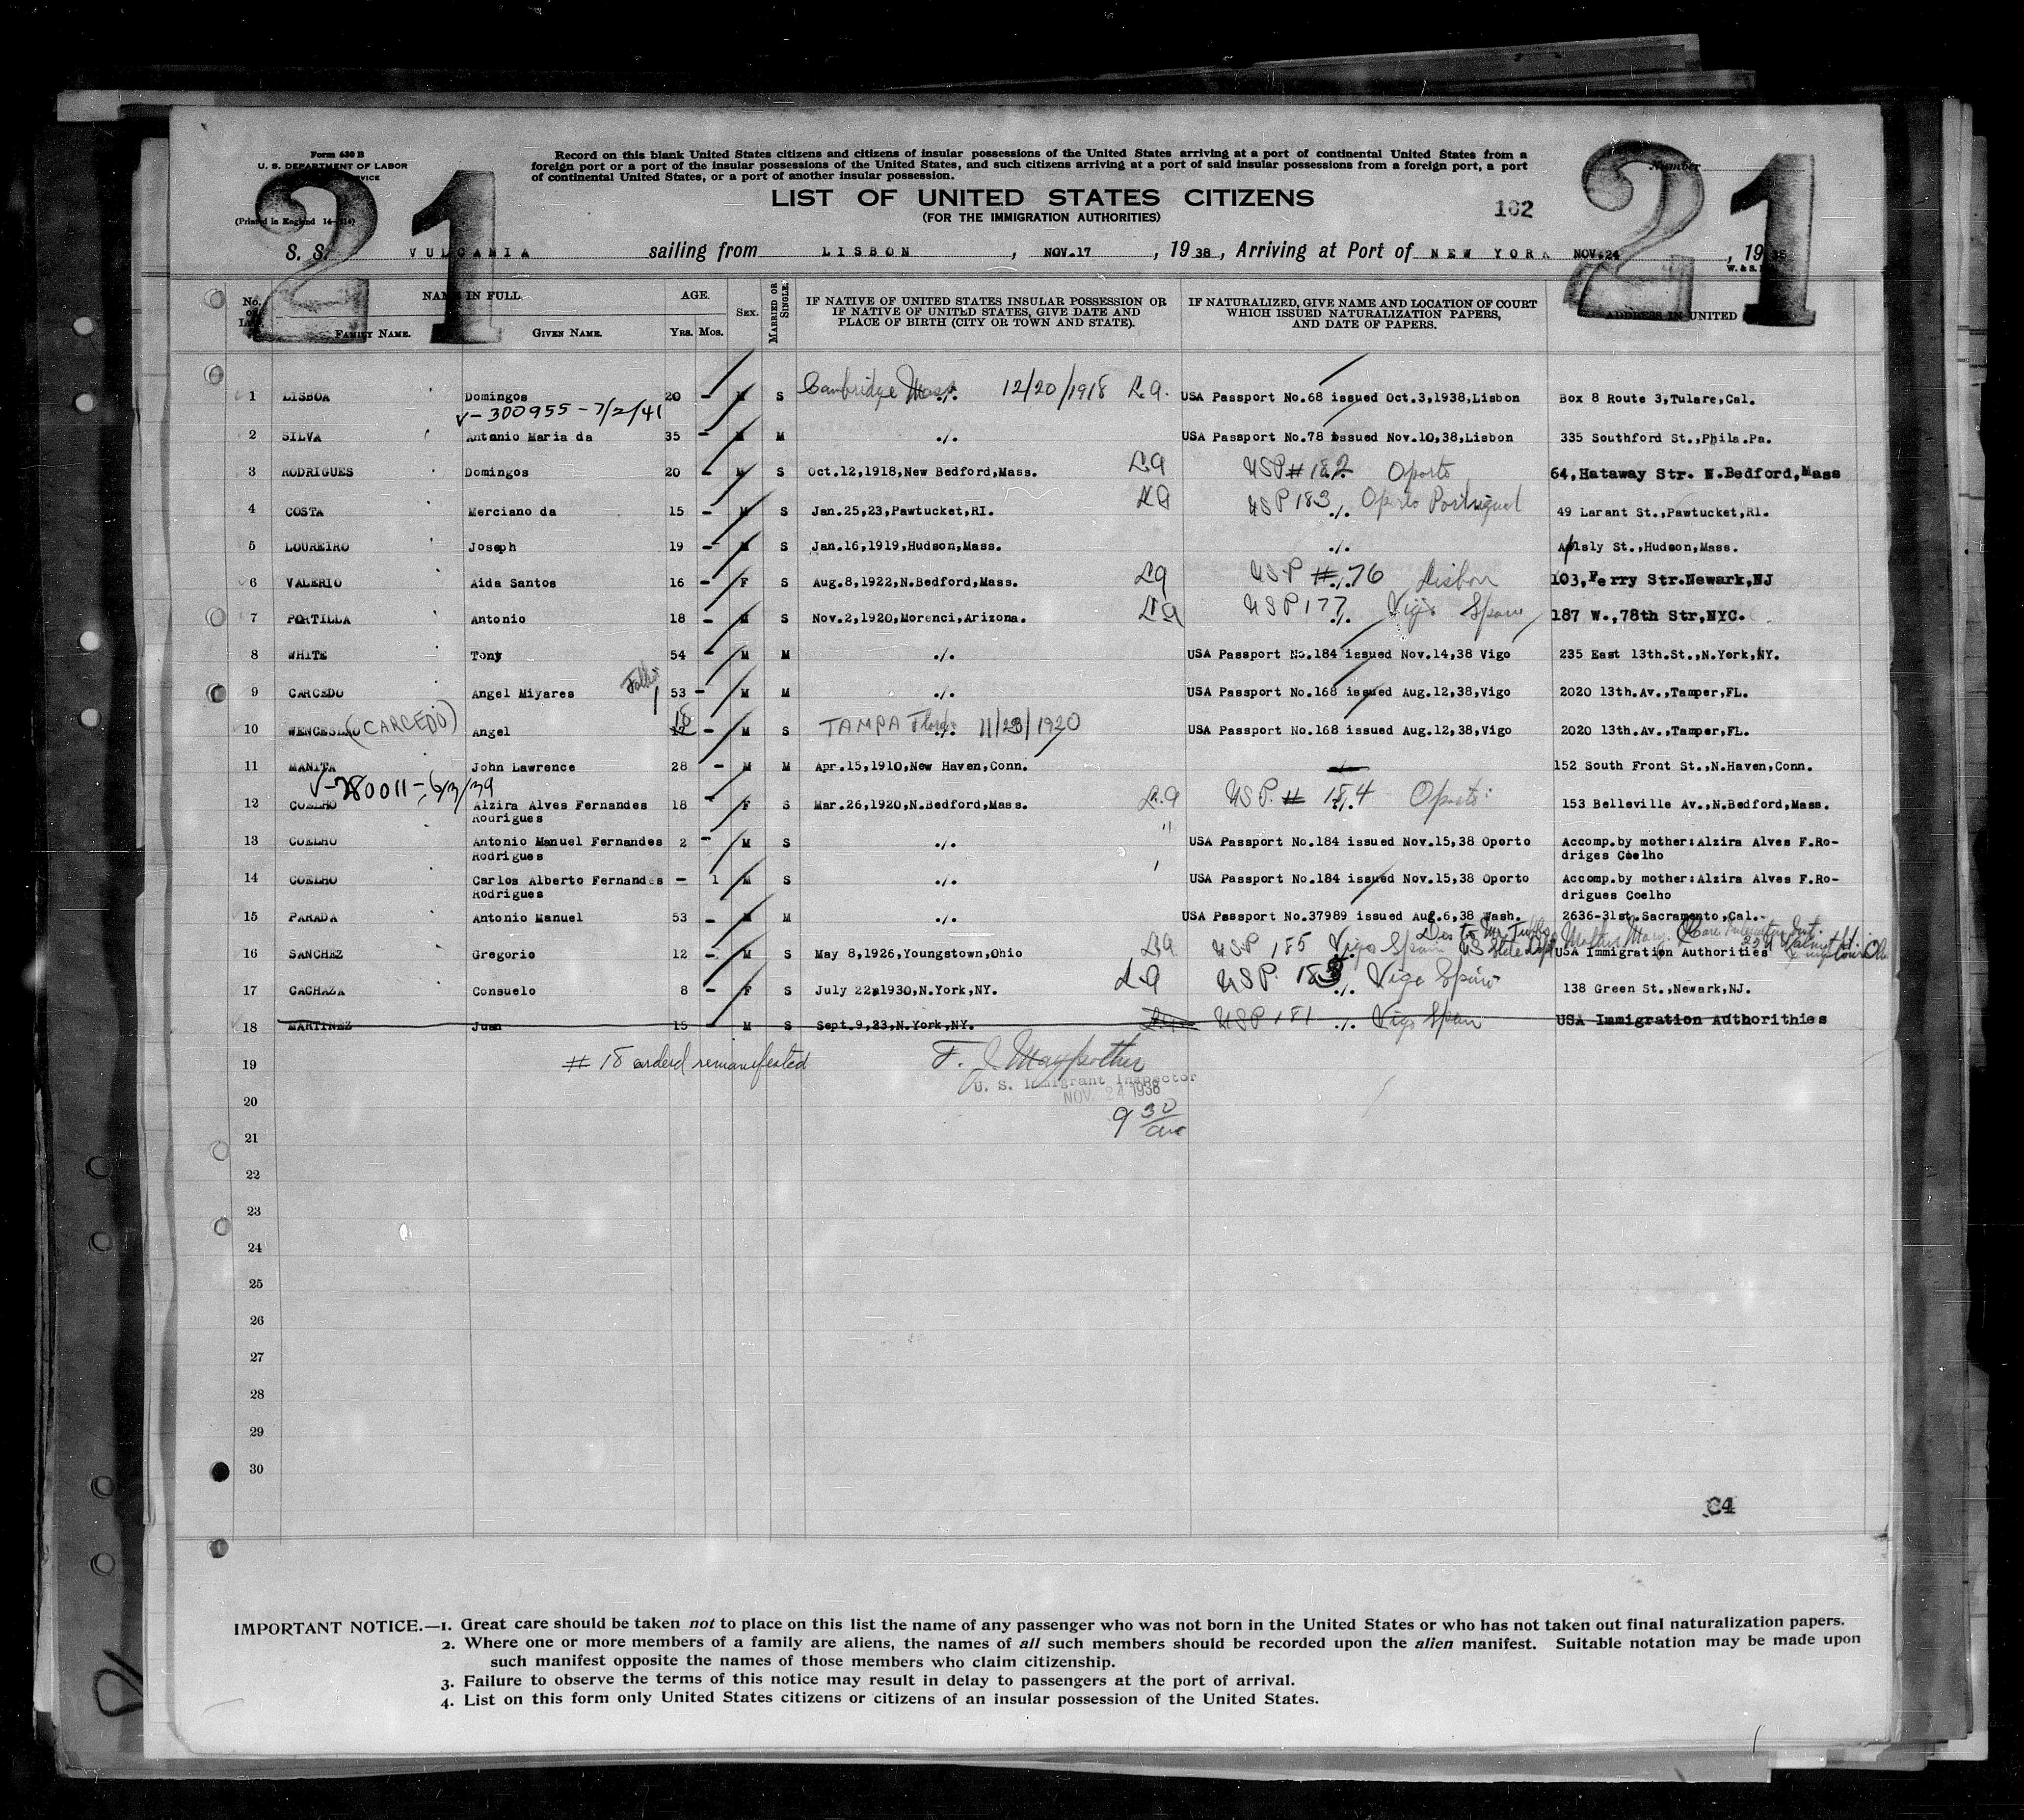 Form 630 B
U. S. DEPARTMENT OF LABOR
SERVICE
(Printed in England 14-214)
21
Record on this blank United States citizens and citizens of insular possessions of the United States arriving at a port of continental United States from a
foreign port or a port of the insular possessions of the United States, and such citizens arriving at a port of said insular possessions from a foreign port, a port
of continental United States, or a port of another insular possession.
LIST OF UNITED STATES CITIZENS
(FOR THE IMMIGRATION AUTHORITIES)
162
Number
21
S. S. VULCANIA sailing from LISBON, NOV.17, 1938, Arriving at Port of NEW YORK NOV.24, 19
No. on List
NAME IN FULL
FAMILY NAME. GIVEN NAME.
AGE.
Yrs. Mos.
SEX.
MARRIED OR SINGLE.
IF NATIVE OF UNITED STATES INSULAR POSSESSION OR
IF NATIVE OF UNITED STATES, GIVE DATE AND
PLACE OF BIRTH (CITY OR TOWN AND STATE).
IF NATURALIZED, GIVE NAME AND LOCATION OF COURT
WHICH ISSUED NATURALIZATION PAPERS,
AND DATE OF PAPERS.
ADDRESS IN UNITED
1 LISBOA Domingos 20 - M S Cambridge Mass. ./. 12/20/1918 L.A. USA Passport No.68 issued Oct.3,1938,Lisbon Box 8 Route 3,Tulare,Cal.
V-300955-7/2/41
2 SILVA Antonio Maria da 35 - M M ./. USA Passport No.78 issued Nov.10,38,Lisbon 335 Southford St.,Phila.Pa.
3 RODRIGUES Domingos 20 - M S Oct.12,1918,New Bedford,Mass. USP # 182 Oporto 64,Hataway Str. N.Bedford,Mass
4 COSTA Merciano da 15 - M S Jan.25,23,Pawtucket,RI. USP 183 ./. Oporto Portugal 49 Larant St.,Pawtucket,RI.
5 LOUREIRO Joseph 19 - M S Jan.16,1919,Hudson,Mass. ./. Aplsly St.,Hudson,Mass.
6 VALERIO Aida Santos 16 - F S Aug.8,1922,N.Bedford,Mass. USP # 76 Lisbon 103,Ferry Str.Newark,NJ
7 PORTILLA Antonio 18 - M S Nov.2,1920,Morenci,Arizona. USP 177 ./. Vigo Spain 187 W.,78th Str,NYC.
8 WHITE Tony 54 - M M ./. USA Passport No.184 issued Nov.14,38 Vigo 235 East 13th.St.,N.York,NY.
9 CARCEDO Angel Miyares Father 53 - M M ./. USA Passport No.168 issued Aug.12,38,Vigo 2020 13th.Av.,Tamper,FL.
10 WENCESLAO (CARCEDO) Angel 17 18 - M S TAMPA Florida ./. 11/28/1920 USA Passport No.168 issued Aug.12,38,Vigo 2020 13th.Av.,Tamper,FL.
11 MANITA John Lawrence 28 - M M Apr.15,1910,New Haven,Conn. 152 South Front St.,N.Haven,Conn.
V-280011-6/3/39
12 COELHO Alzira Alves Fernandes 18 - F S Mar.26,1920,N.Bedford,Mass. USP. # 184 Oporto 153 Belleville Av.,N.Bedford,Mass.
Rodrigues
13 COELHO Antonio Manuel Fernandes 2 - M S ./. USA Passport No.184 issued Nov.15,38 Oporto Accomp.by mother:Alzira Alves F.Ro-
Rodrigues driges Coelho
14 COELHO Carlos Alberto Fernandes - 1 M S ./. USA Passport No.184 issued Nov.15,38 Oporto Accomp.by mother:Alzira Alves F.Ro-
Rodrigues drigues Coelho
15 PARADA Antonio Manuel 53 - M M ./. USA Passport No.37989 issued Aug.6,38 Wash. 2636-31st.Sacramento,Cal.
16 SANCHEZ Gregorio 12 - M S May 8,1926,Youngstown,Ohio USP 185 Vigo Spain US State Dept USA Immigration Authorities
17 CACHAZA Consuelo 8 - F S July 22,1930,N.York,NY. USP. 183 ./. Vigo Spain 138 Green St.,Newark,NJ.
18 MARTINEZ Juan 15 - M S Sept.9,23,N.York,NY. USP 181 ./. Vigo Spain USA Immigration Authorithies
19 # 18 orderd remanifested
U. S. Immigrant Inspector
NOV. 24 1938
20
9 30 am
21
22
23
24
25
26
27
28
29
30
C4
IMPORTANT NOTICE.—1. Great care should be taken not to place on this list the name of any passenger who was not born in the United States or who has not taken out final naturalization papers.
2. Where one or more members of a family are aliens, the names of all such members should be recorded upon the alien manifest. Suitable notation may be made upon
such manifest opposite the names of those members who claim citizenship.
3. Failure to observe the terms of this notice may result in delay to passengers at the port of arrival.
4. List on this form only United States citizens or citizens of an insular possession of the United States.